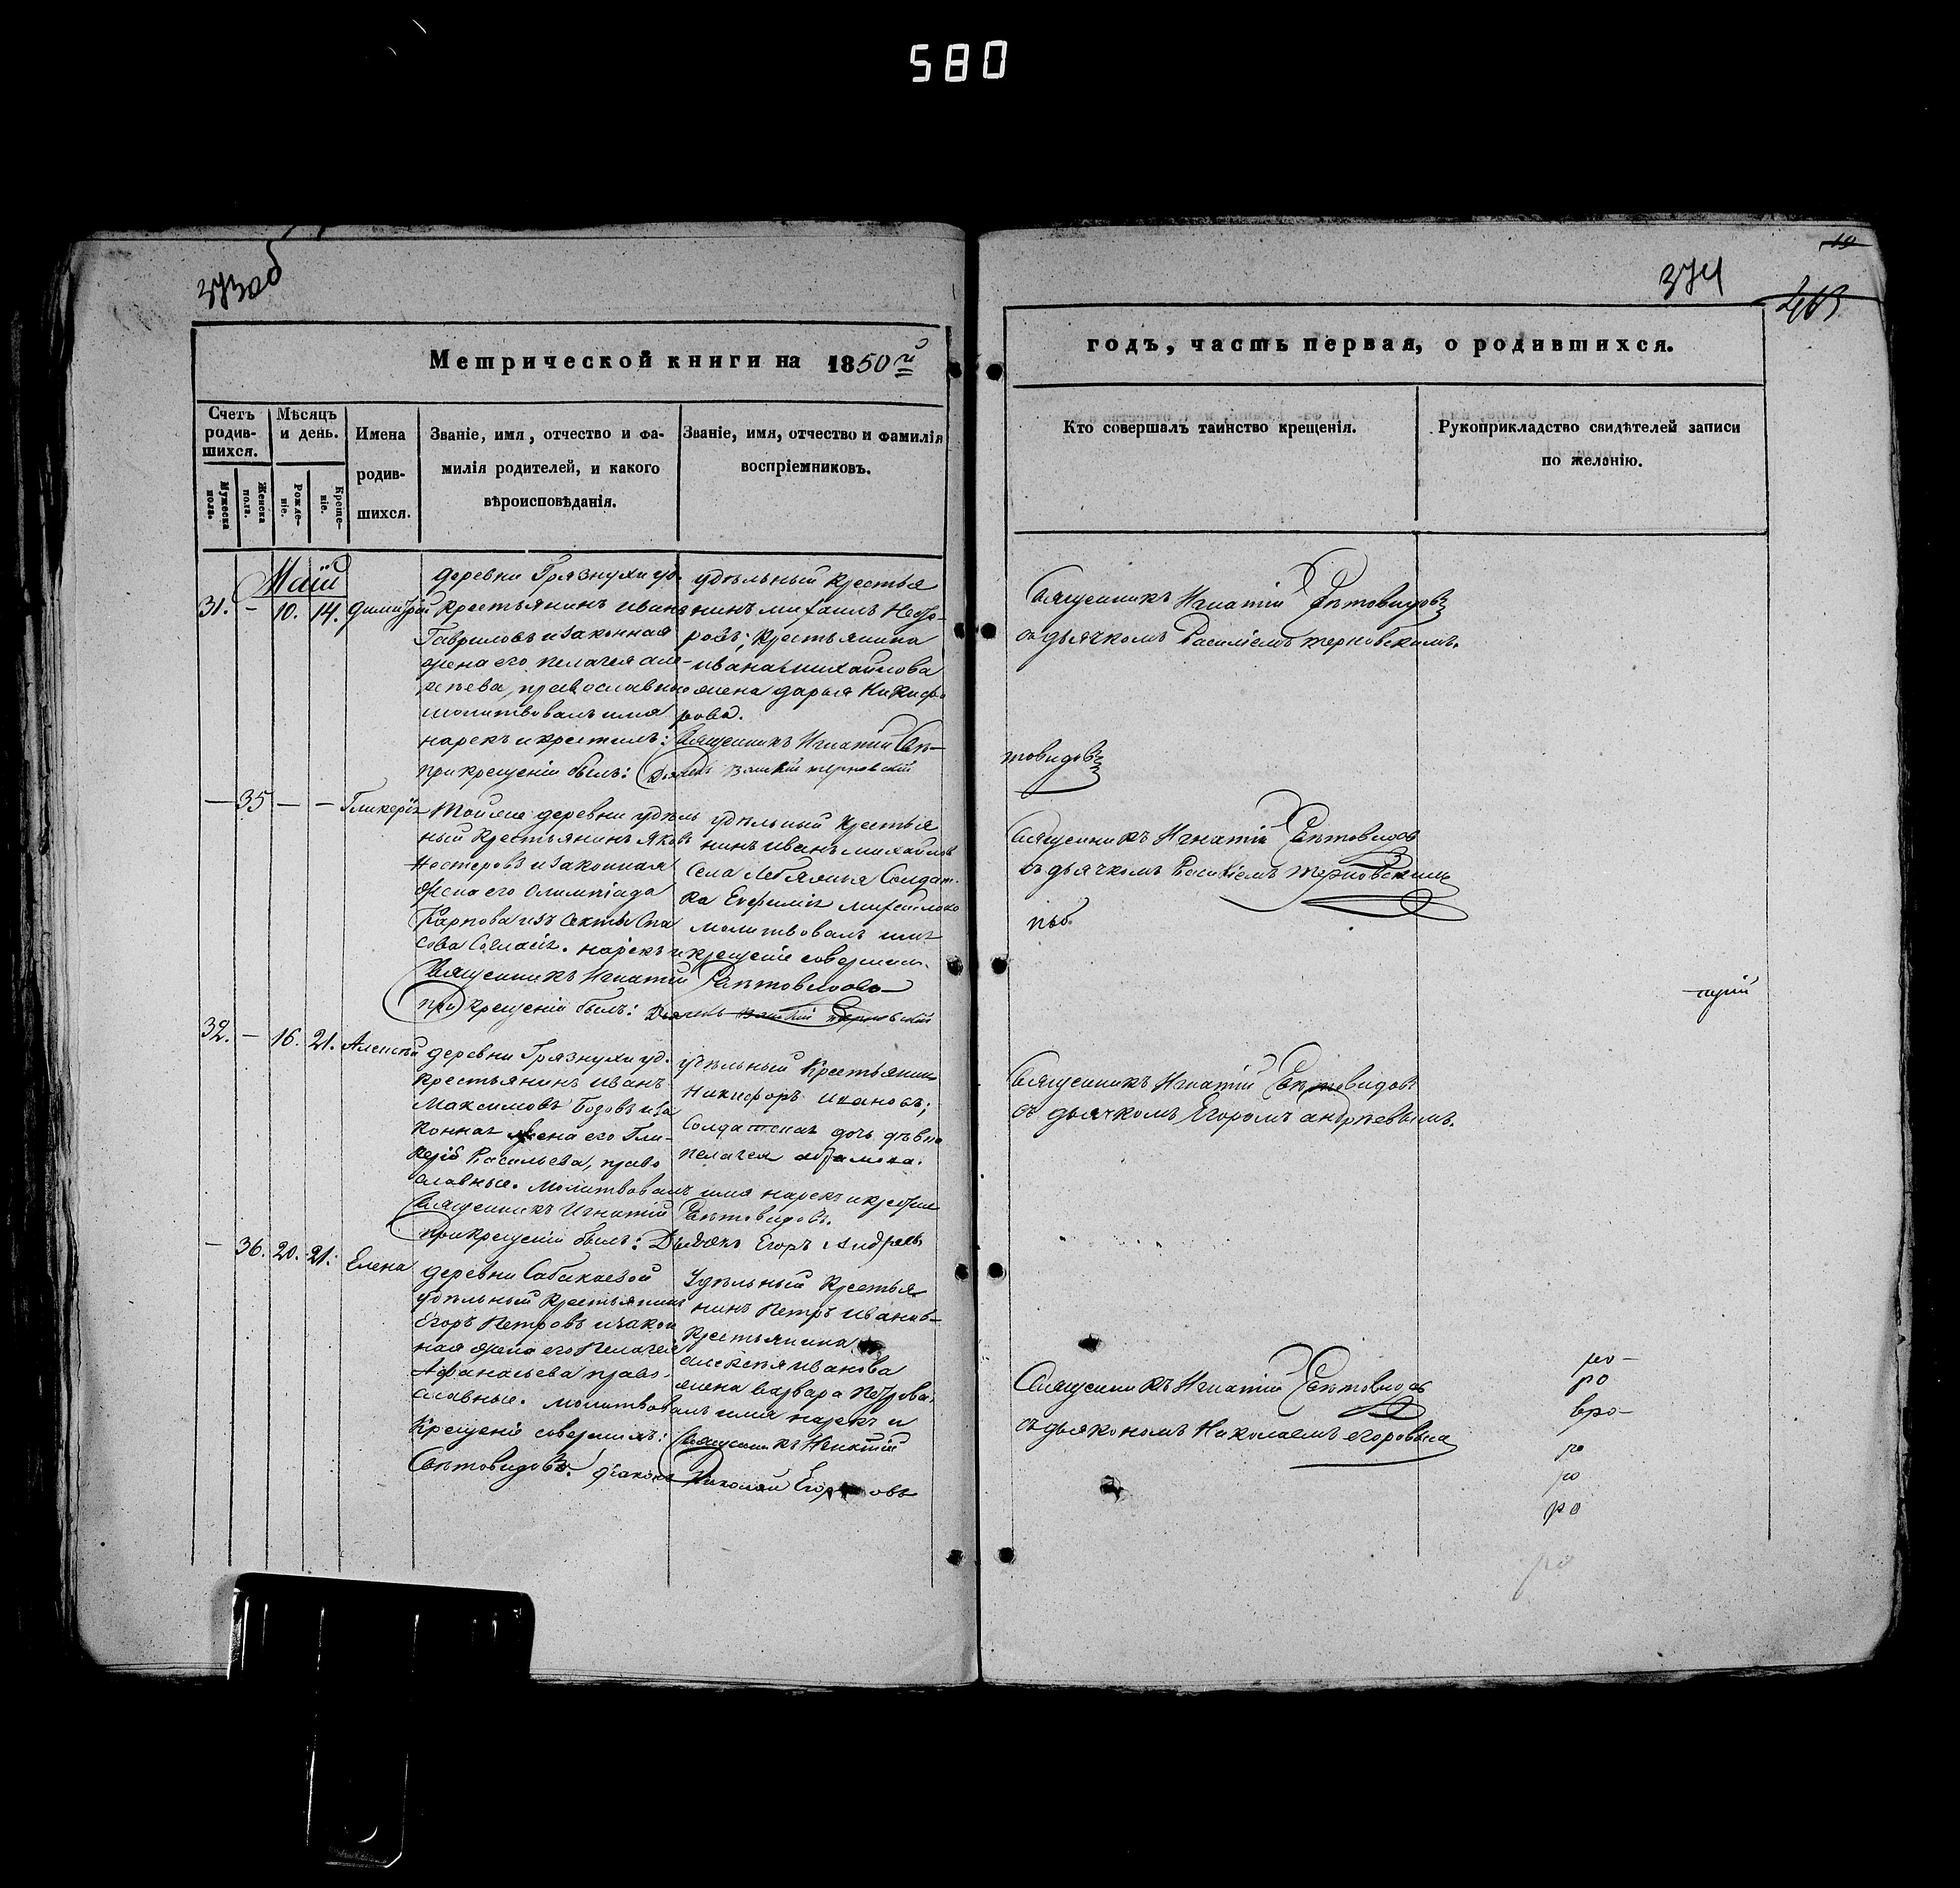 580
373 об
374
Метрической книги на 1850й
годъ, часть первая, о родившихся.
Счетъ родившихся.
Мѣсяцъ и день.
Имена родившихся.
Званіе, имя, отчество и фамилія родителей, и какого вѣроисповѣданія.
Званіе, имя, отчество и фамилія воспріемниковъ.
Кто совершалъ таинство крещенія.
Рукоприкладство свидѣтелей записи по желанію.
Мужеска пола.
Женска пола.
Рожденіе.
Крещеніе.
Маій
31. – 10. 14. Димитрій
деревни Грязнухи уд.
крестьянинъ Иванъ
Гавриловъ и законная
жена его Пелагея Але-
ѣева, православные
молитвовалъ имя
нарекъ и крестилъ: Священникъ Игнатій Свѣ-
товидовъ
при крещеніи былъ: Дьячекъ Василій Терновскій
удѣльный крестья
нинъ Михаилъ Федо-
ровъ; крестьянина
Ивана Михайлова
жена Дарья Никифо
рова.
Священникъ Игнатій Свѣтовидовъ
съ дьячкомъ Василіемъ Терновскимъ.
– 35 – – Гликерія
Тойже деревни удѣль
ный крестьянинъ Яковъ
Нестеровъ и законная
жена его Олимпіада
Карпова изъ секты Спа
сова Согласія. нарекъ и крещеніе совершилъ
Священникъ Игнатій Свѣтовидовъ
при крещеніи былъ: Дьячекъ Василій Терновскій
удѣльный крестья
нинъ Иванъ Михайловъ
Села Лебяжья Солдат-
ка Евфимія Михайлова
молитвовалъ имя
Священникъ Игнатій Свѣтовидовъ
съ дьячкомъ Василіемъ Терновскимъ
32. – 16. 21. Алексѣй
деревни Грязнухи уд.
крестьянинъ Иванъ
Максимовъ Бозовъ и за
конная жена его Гли-
керія Васильева, право
славные. Молитвовалъ имя нарекъ и крестилъ
Священникъ Игнатій Свѣтовидовъ.
при крещеніи былъ: Дьячекъ Егоръ Андреевъ
удѣльный крестьянинъ
Никифоръ Ивановъ;
Солдатская дочь дѣвка
Пелагея
Священникъ Игнатій Свѣтовидовъ
съ дьячкомъ Егоромъ Андреевымъ.
– 36. 20. 21. Елена
деревни Сабакаевой
удѣльный крестьянинъ
Егоръ Петровъ и закон
ная жена его Пелагея
Афанасьева право-
славные. молитвовалъ имя нарекъ и
крещеніе совершилъ: Священникъ Игнатій
Свѣтовидовъ. діаконъ Николай Егоровъ
Удѣльный крестья
нинъ Петръ Ивановъ
крестьянина
Алексѣя Иванова
жена Варвара Петрова,
Священникъ Игнатій Свѣтовидовъ
съ дьякономъ Николаемъ Егоровымъ
ро
ро
ро
ро
ро
ро